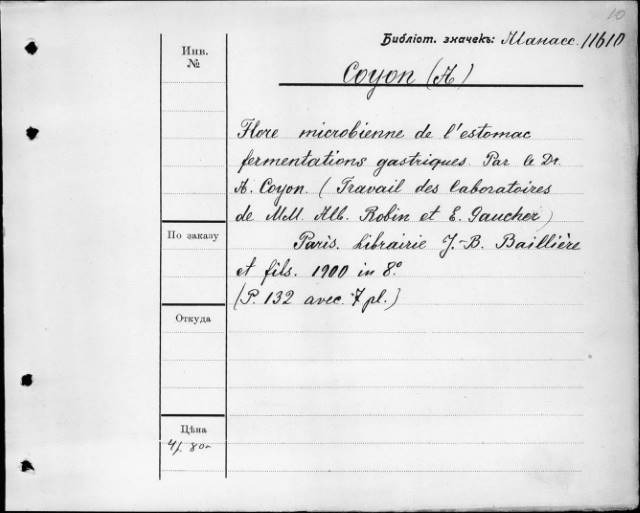 10
Библіот. значекъ: Манасс. 11610
Инв.
№
Coyon (A)
Flore microbienne de l'estomac
fermentations gastriques. Par le Dr
A. Coyon. (Travail des laboratoires
de MM. Alb. Robin et E. Gaucher)
По заказу
Paris. Librairie J.-B. Baillière
et fils. 1900 in 8º
(P. 132 avec 7 pl.)
Откуда
Цѣна